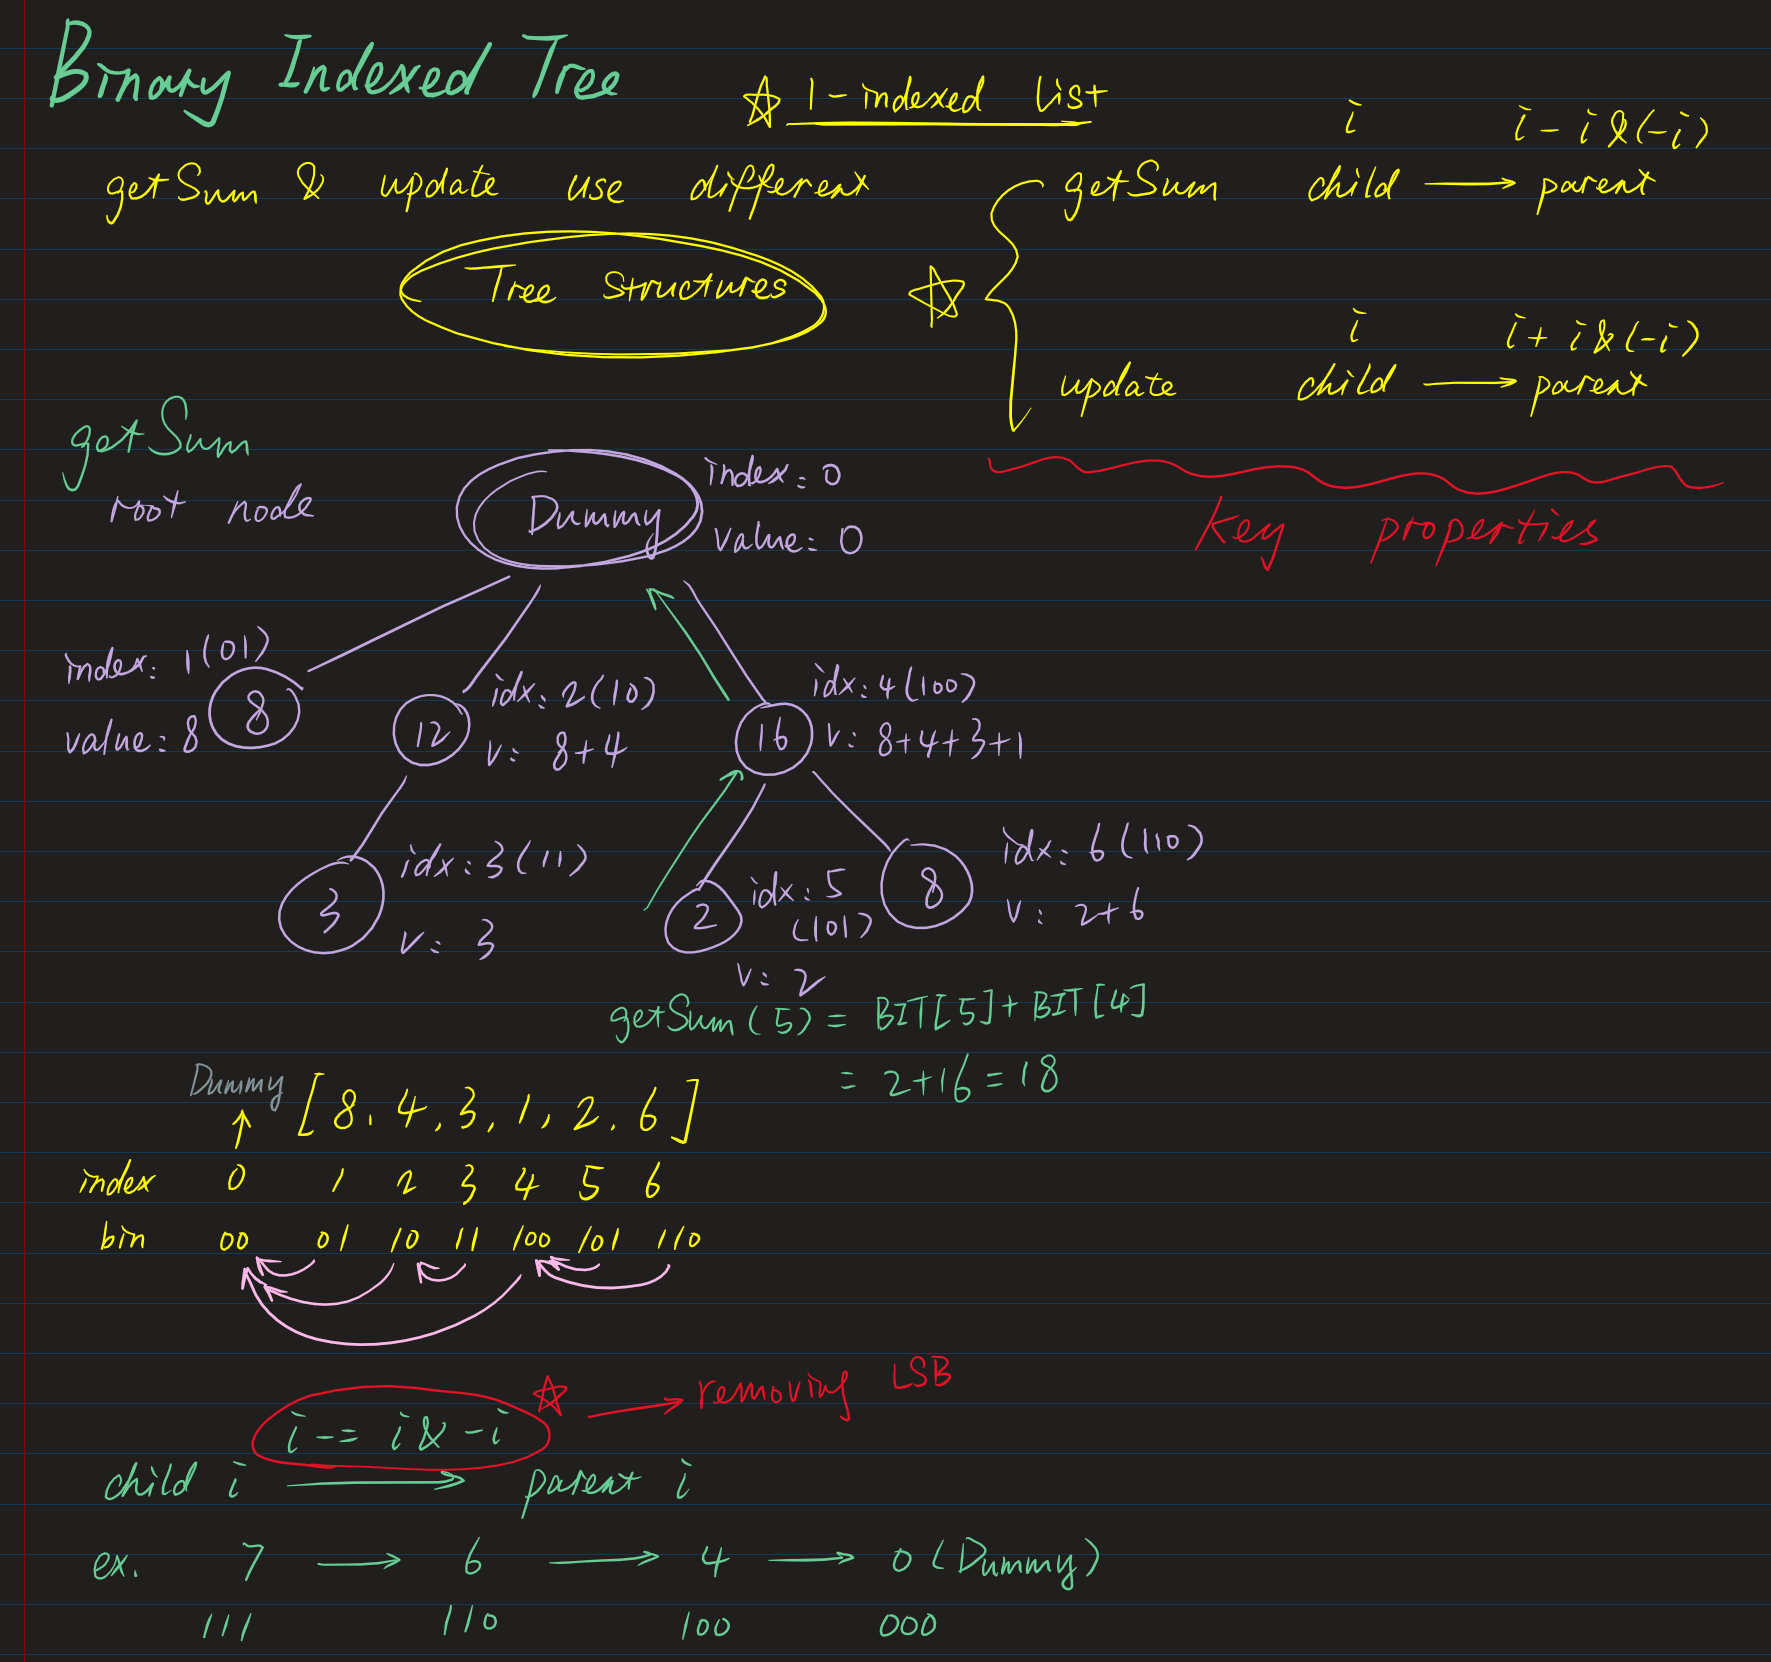 Binary Indexed Tree
☆ 1-indexed list
getSum & update use different
Tree Structures
☆
i i - i & (-i)
getSum child → parent
i i + i & (-i)
update child → parent
key properties
getSum
root node
Dummy
index: 0
value: 0
index: 1 (01)
value: 8
8
12
idx: 2 (10)
v: 8+4
16
idx: 4 (100)
v: 8+4+3+1
3
idx: 3 (11)
v: 3
2
idx: 5
(101)
v: 2
8
idx: 6 (110)
v: 2+6
getSum (5) = BIT[5] + BIT[4]
= 2+16 = 18
Dummy [8, 4, 3, 1, 2, 6]
↑
index 0 1 2 3 4 5 6
bin 00 01 10 11 100 101 110
i -= i & -i ☆ → removing LSB
child i → parent i
ex. 7 → 6 → 4 → 0 (Dummy)
111 110 100 000